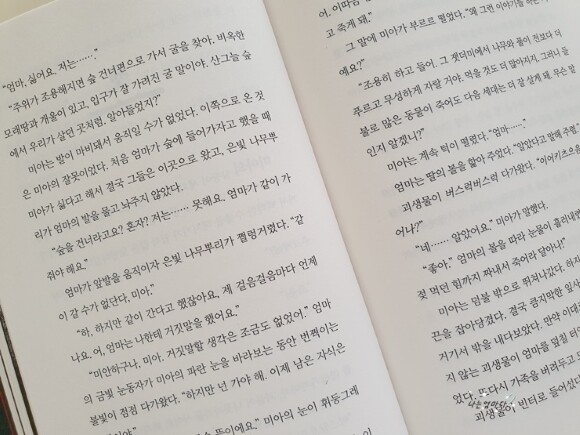 "엄마, 싫어요. 저는……."
"주위가 조용해지면 숲 건너편으로 가서 굴을 찾아. 비옥한
모래땅과 개울이 있고, 입구가 잘 가려진 굴 말이야. 산그늘 숲
에서 우리가 살던 곳처럼. 알아들었지?"
미아는 발이 마비돼서 움직일 수가 없었다. 이쪽으로 온 것
은 미아의 잘못이었다. 처음 엄마가 숲에 들어가자고 했을 때
미아가 싫다고 해서 결국 그들은 이곳으로 왔고, 은빛 나무뿌
리가 엄마의 발을 물고 놔주지 않았다.
"숲을 건너라고요? 혼자? 저는…… 못해요. 엄마가 같이 가
줘야 해요."
엄마가 앞발을 움직이자 은빛 나무뿌리가 쩔렁거렸다. "같
이 갈 수가 없단다, 미아."
"하, 하지만 같이 간다고 했잖아요, 제 걸음걸음마다 언제
나요. 어, 엄마는 나한테 거짓말을 했어요."
"미안하구나, 미아. 거짓말할 생각은 조금도 없었어." 엄마
의 금빛 눈동자가 미아의 파란 눈을 바라보는 동안 번쩍이는
불빛이 점점 다가왔다. "하지만 넌 가야 해. 이제 남은 자식은
미아의 눈이 휘둥그레
고 죽게 돼."
그 말에 미아가 부르르 떨었다. "왜 그런 이야기를
예요?"
"조용히 하고 들어. 그 잿더미에서 나무와 풀이 전보다 더
푸르고 무성하게 자랄 거야. 먹을 것도 더 많아지지. 그러니 들
불로 많은 동물이 죽어도 다음 세대는 더 잘 살게 돼. 무슨 말
인지 알겠니?"
미아는 계속 턱이 떨렸다. "엄마……."
엄마는 딸의 볼을 핥아 주었다. "알았다고 말해 주렴."
괴생물이 버스럭버스럭 다가왔다.
어나?"
"네…… 알았어요." 미아가 말했다.
"좋아." 엄마의 볼을 따라 눈물이 흘러내렸
젖 먹던 힘까지 짜내서 죽어라 달아나!"
미아는 덤불 밖으로 뛰쳐나갔다.
끈을 잡아당겼다. 결국 큼지막한 잎사
거기서 밖을 내다보았다. 만약
지 않는 괴생물이 엄마를 덮칠
었다. 또다시 가족을 버려두고
괴생물이 빈터로 들어섰다